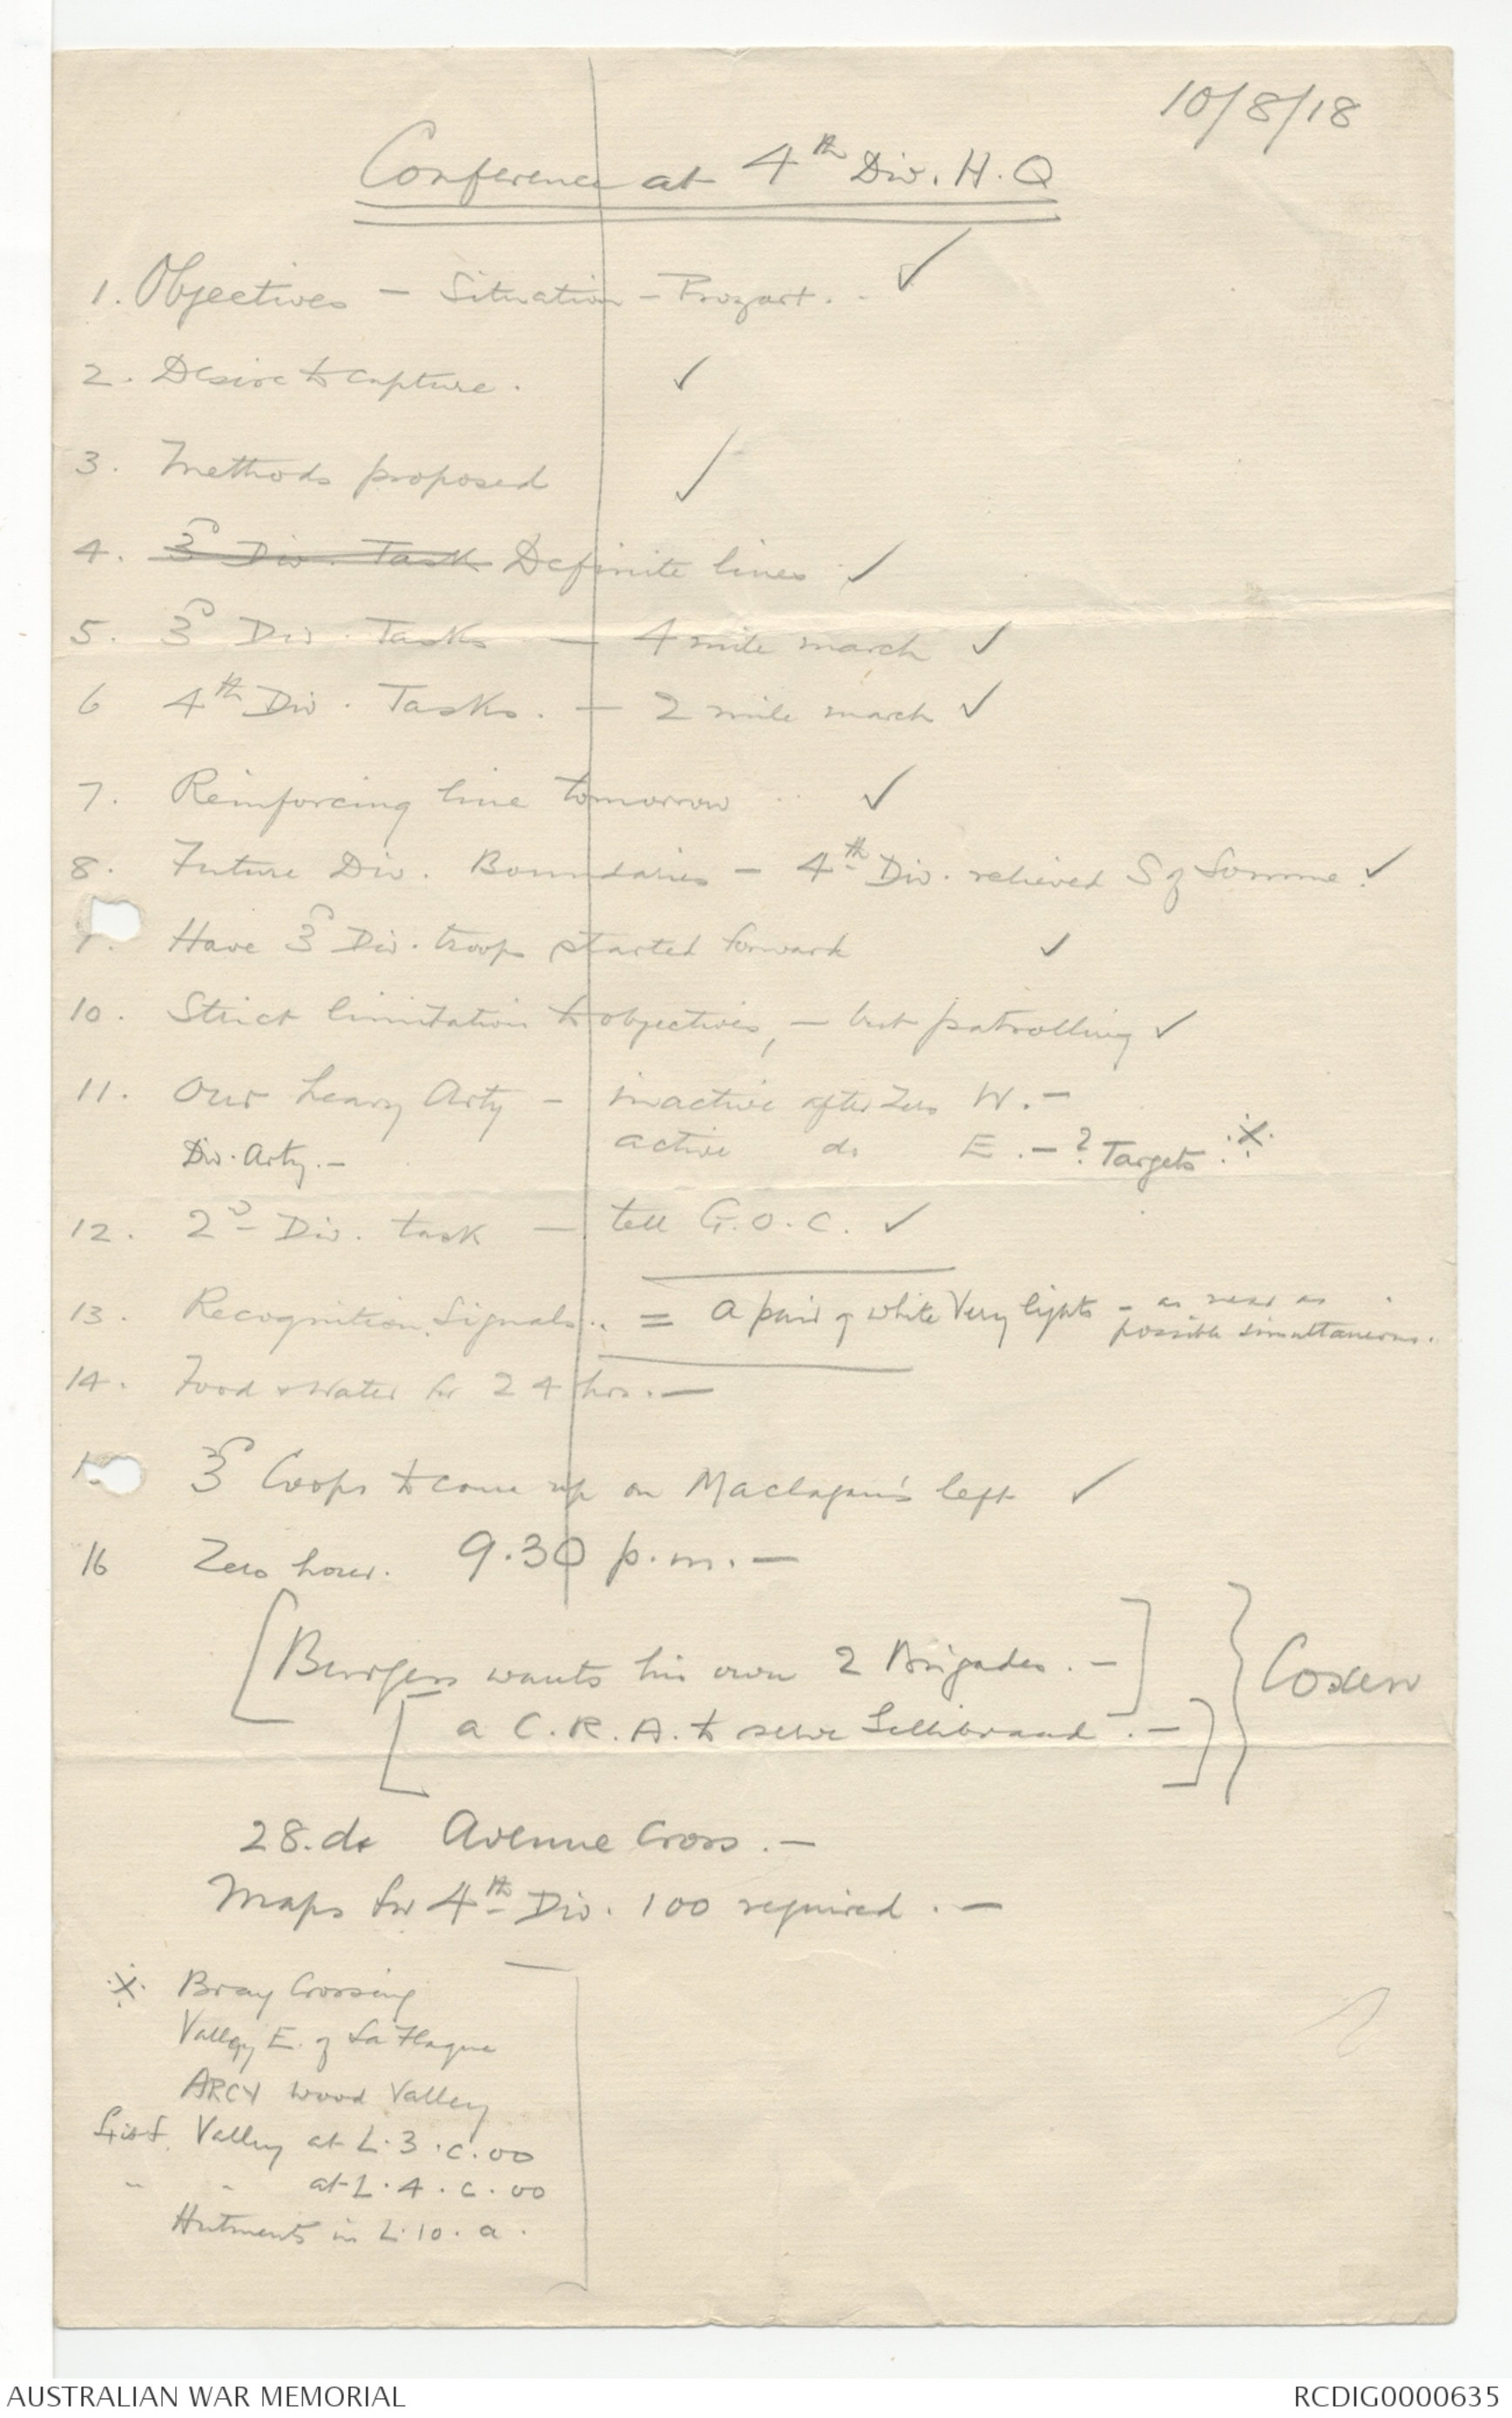 10/8/18
Conference at 4th Div. H.Q
1. Objectives - Situation - Proyart. - ✓
2. Desire to capture. ✓
3. Methods proposed ✓
4. 3rd Div. Task Definite lines ✓
5. 3rd Div. Tasks - 4 mile march ✓
6 4th Div. Tasks. - 2 mile march ✓
7. Reinforcing line tomorrow ✓
8. Future Div. Boundaries - 4th Div. relieved S of Somme. ✓
Have 3rd Div. troops started forward ✓
10. Strict limitation to objectives, - but patrolling ✓
11. Our heavy Arty - inactive after Zero W. -
Div. Arty. - active do E. - ? Targets.
12. 2nd Div. task - tell G.O.C. ✓
13. Recognition Signals. = a pair of white Very lights - as near as
possible simultaneous.
14. Food & Water for 24 hrs. -
3rd Corps to come up on Maclagan's left ✓
16 Zero hour. 9.30 p.m. -
[Burgess wants his own 2 Brigades. -]
[a C.R.A. to serve Gellibrand. -] } Coxen
28. d. Avenue Cross. -
Maps for 4th Div. 100 required. -
Bray Crossing
Valley E. of La Flaque
ARCY Wood Valley
Valley at L.3.c.00
" " at L.4.c.00
Hutments in L.10.a.
AUSTRALIAN WAR MEMORIAL
RCDIG0000635